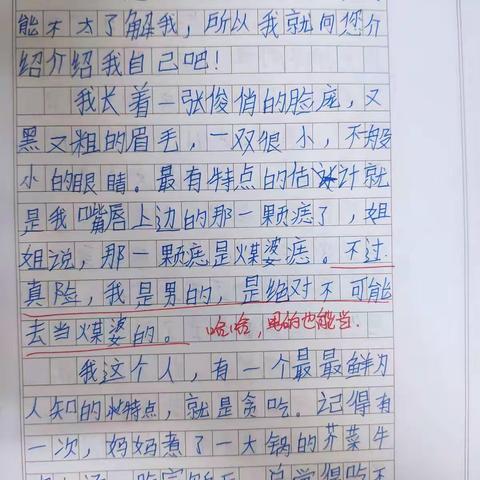 能不太了解我，所以我就向您介
绍介绍我自己吧！
我长着一张俊俏的脸庞，又
黑又粗的眉毛，一双很小，不般
小的眼睛。最有特点的估计就
是我嘴唇上边的那一颗痣了，姐
姐说，那一颗痣是煤婆痣。不过
真险，我是男的，是绝对不可能
去当煤婆的。哈哈，男的也能当.
我这个人，有一个最最鲜为
人知的特点，就是贪吃。记得有
一次，妈妈煮了一大锅的芥菜牛